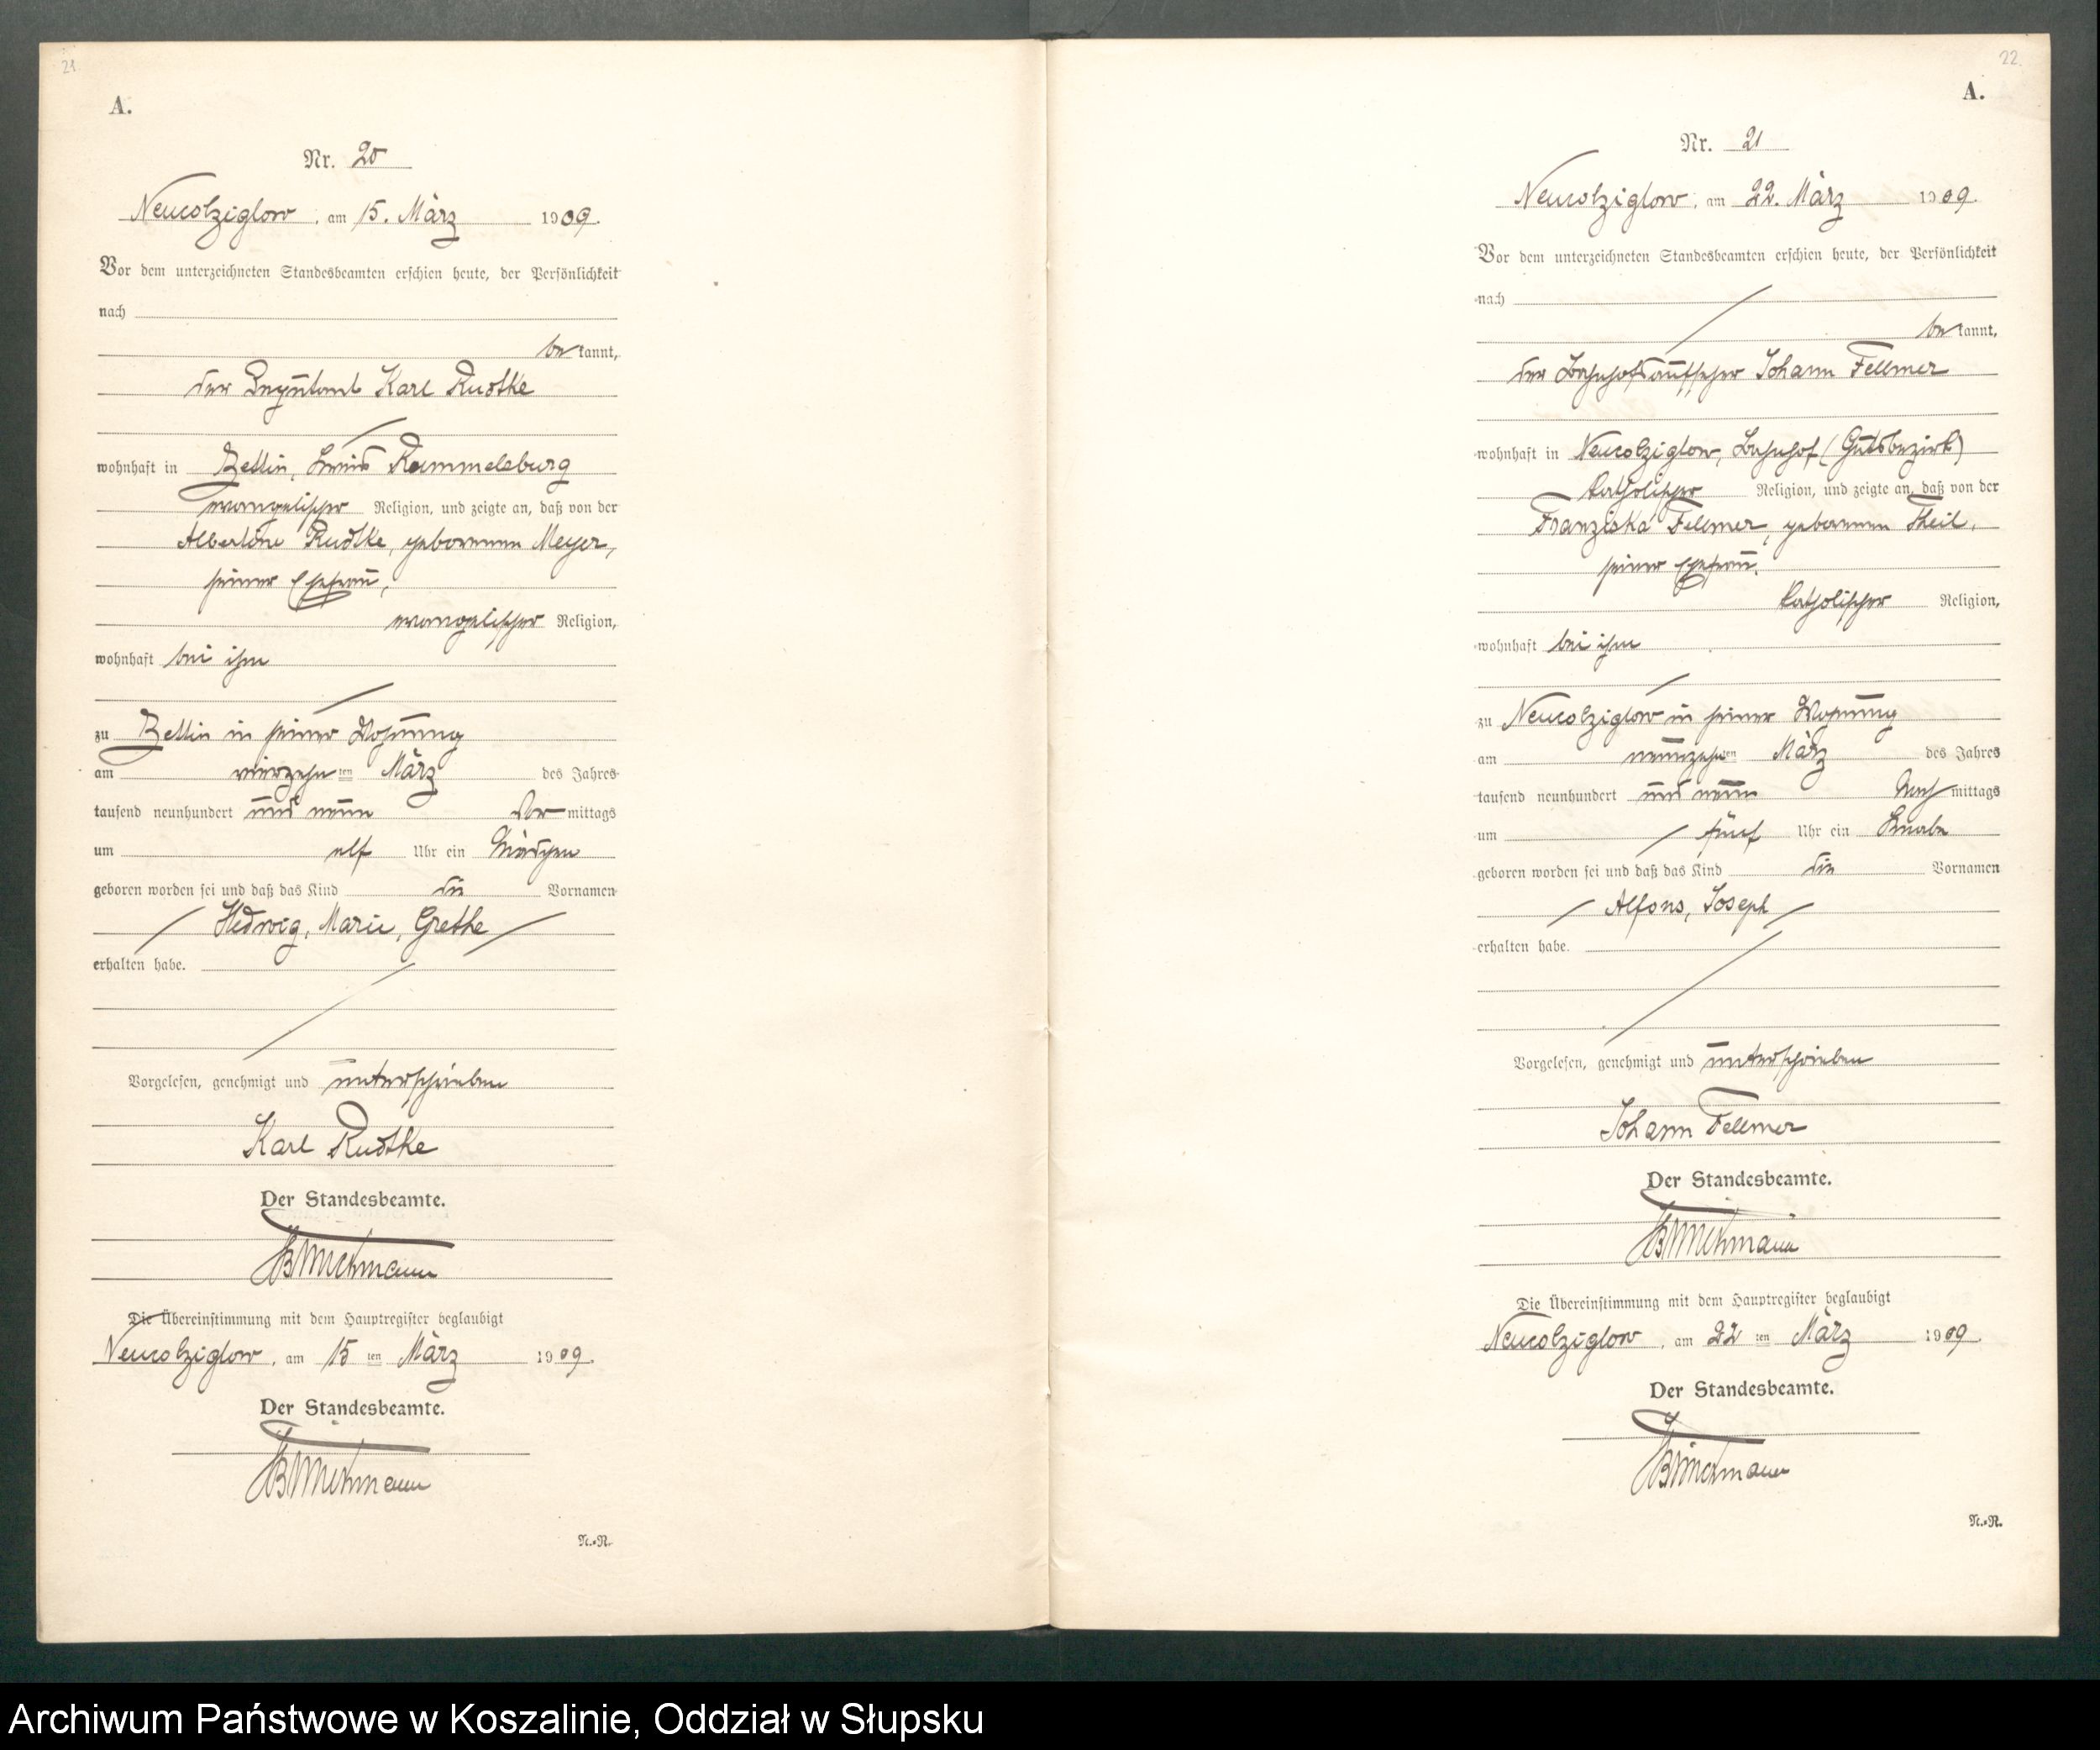 21.
A.
Nr. 20
Neukolziglow, am 15. März 1909.
Vor dem unterzeichneten Standesbeamten erschien heute, der Persönlichkeit
nach
bekannt,
der Deputant Karl Rudtke
wohnhaft in Zettin, Kreis Rummelsburg
evangelischer Religion, und zeigte an, daß von der
Albertine Rudtke, geborenen Meyer,
seiner Ehefrau,
evangelischer Religion,
wohnhaft bei ihm
zu Zettin in seiner Wohnung
am vierzehnten März des Jahres
tausend neunhundert und neun Vormittags
um elf Uhr ein Mädchen
geboren worden sei und daß das Kind die Vornamen
Hedwig, Marie, Grethe
erhalten habe.
Vorgelesen, genehmigt und unterschrieben
Karl Rudtke
Der Standesbeamte.
Die Übereinstimmung mit dem Hauptregister beglaubigt
Neukolziglow, am 15ten März 1909.
Der Standesbeamte.
N.=R.
22.
A.
Nr. 21
Neukolziglow, am 22. März 1909.
Vor dem unterzeichneten Standesbeamten erschien heute, der Persönlichkeit
nach
bekannt,
der Bahnhofsaufseher Johann Fellmer
wohnhaft in Neukolziglow, Bahnhof (Gutsbezirk)
katholischer Religion, und zeigte an, daß von der
Franziska Fellmer, geborenen Theil,
seiner Ehefrau,
katholischer Religion,
wohnhaft bei ihm
zu Neukolziglow in seiner Wohnung
am neunzehnten März des Jahres
tausend neunhundert und neun Nachmittags
um fünf Uhr ein Knabe
geboren worden sei und daß das Kind die Vornamen
Alfons, Joseph
erhalten habe.
Vorgelesen, genehmigt und unterschrieben
Johann Fellmer
Der Standesbeamte.
Die Übereinstimmung mit dem Hauptregister beglaubigt
Neukolziglow, am 22ten März 1909.
Der Standesbeamte.
N.=R.
Archiwum Państwowe w Koszalinie, Oddział w Słupsku